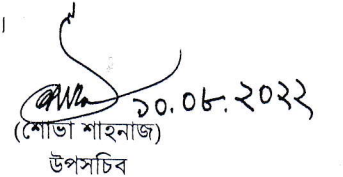 ১০.০৮.২০২২
(শোভা শাহনাজ)
উপসচিব